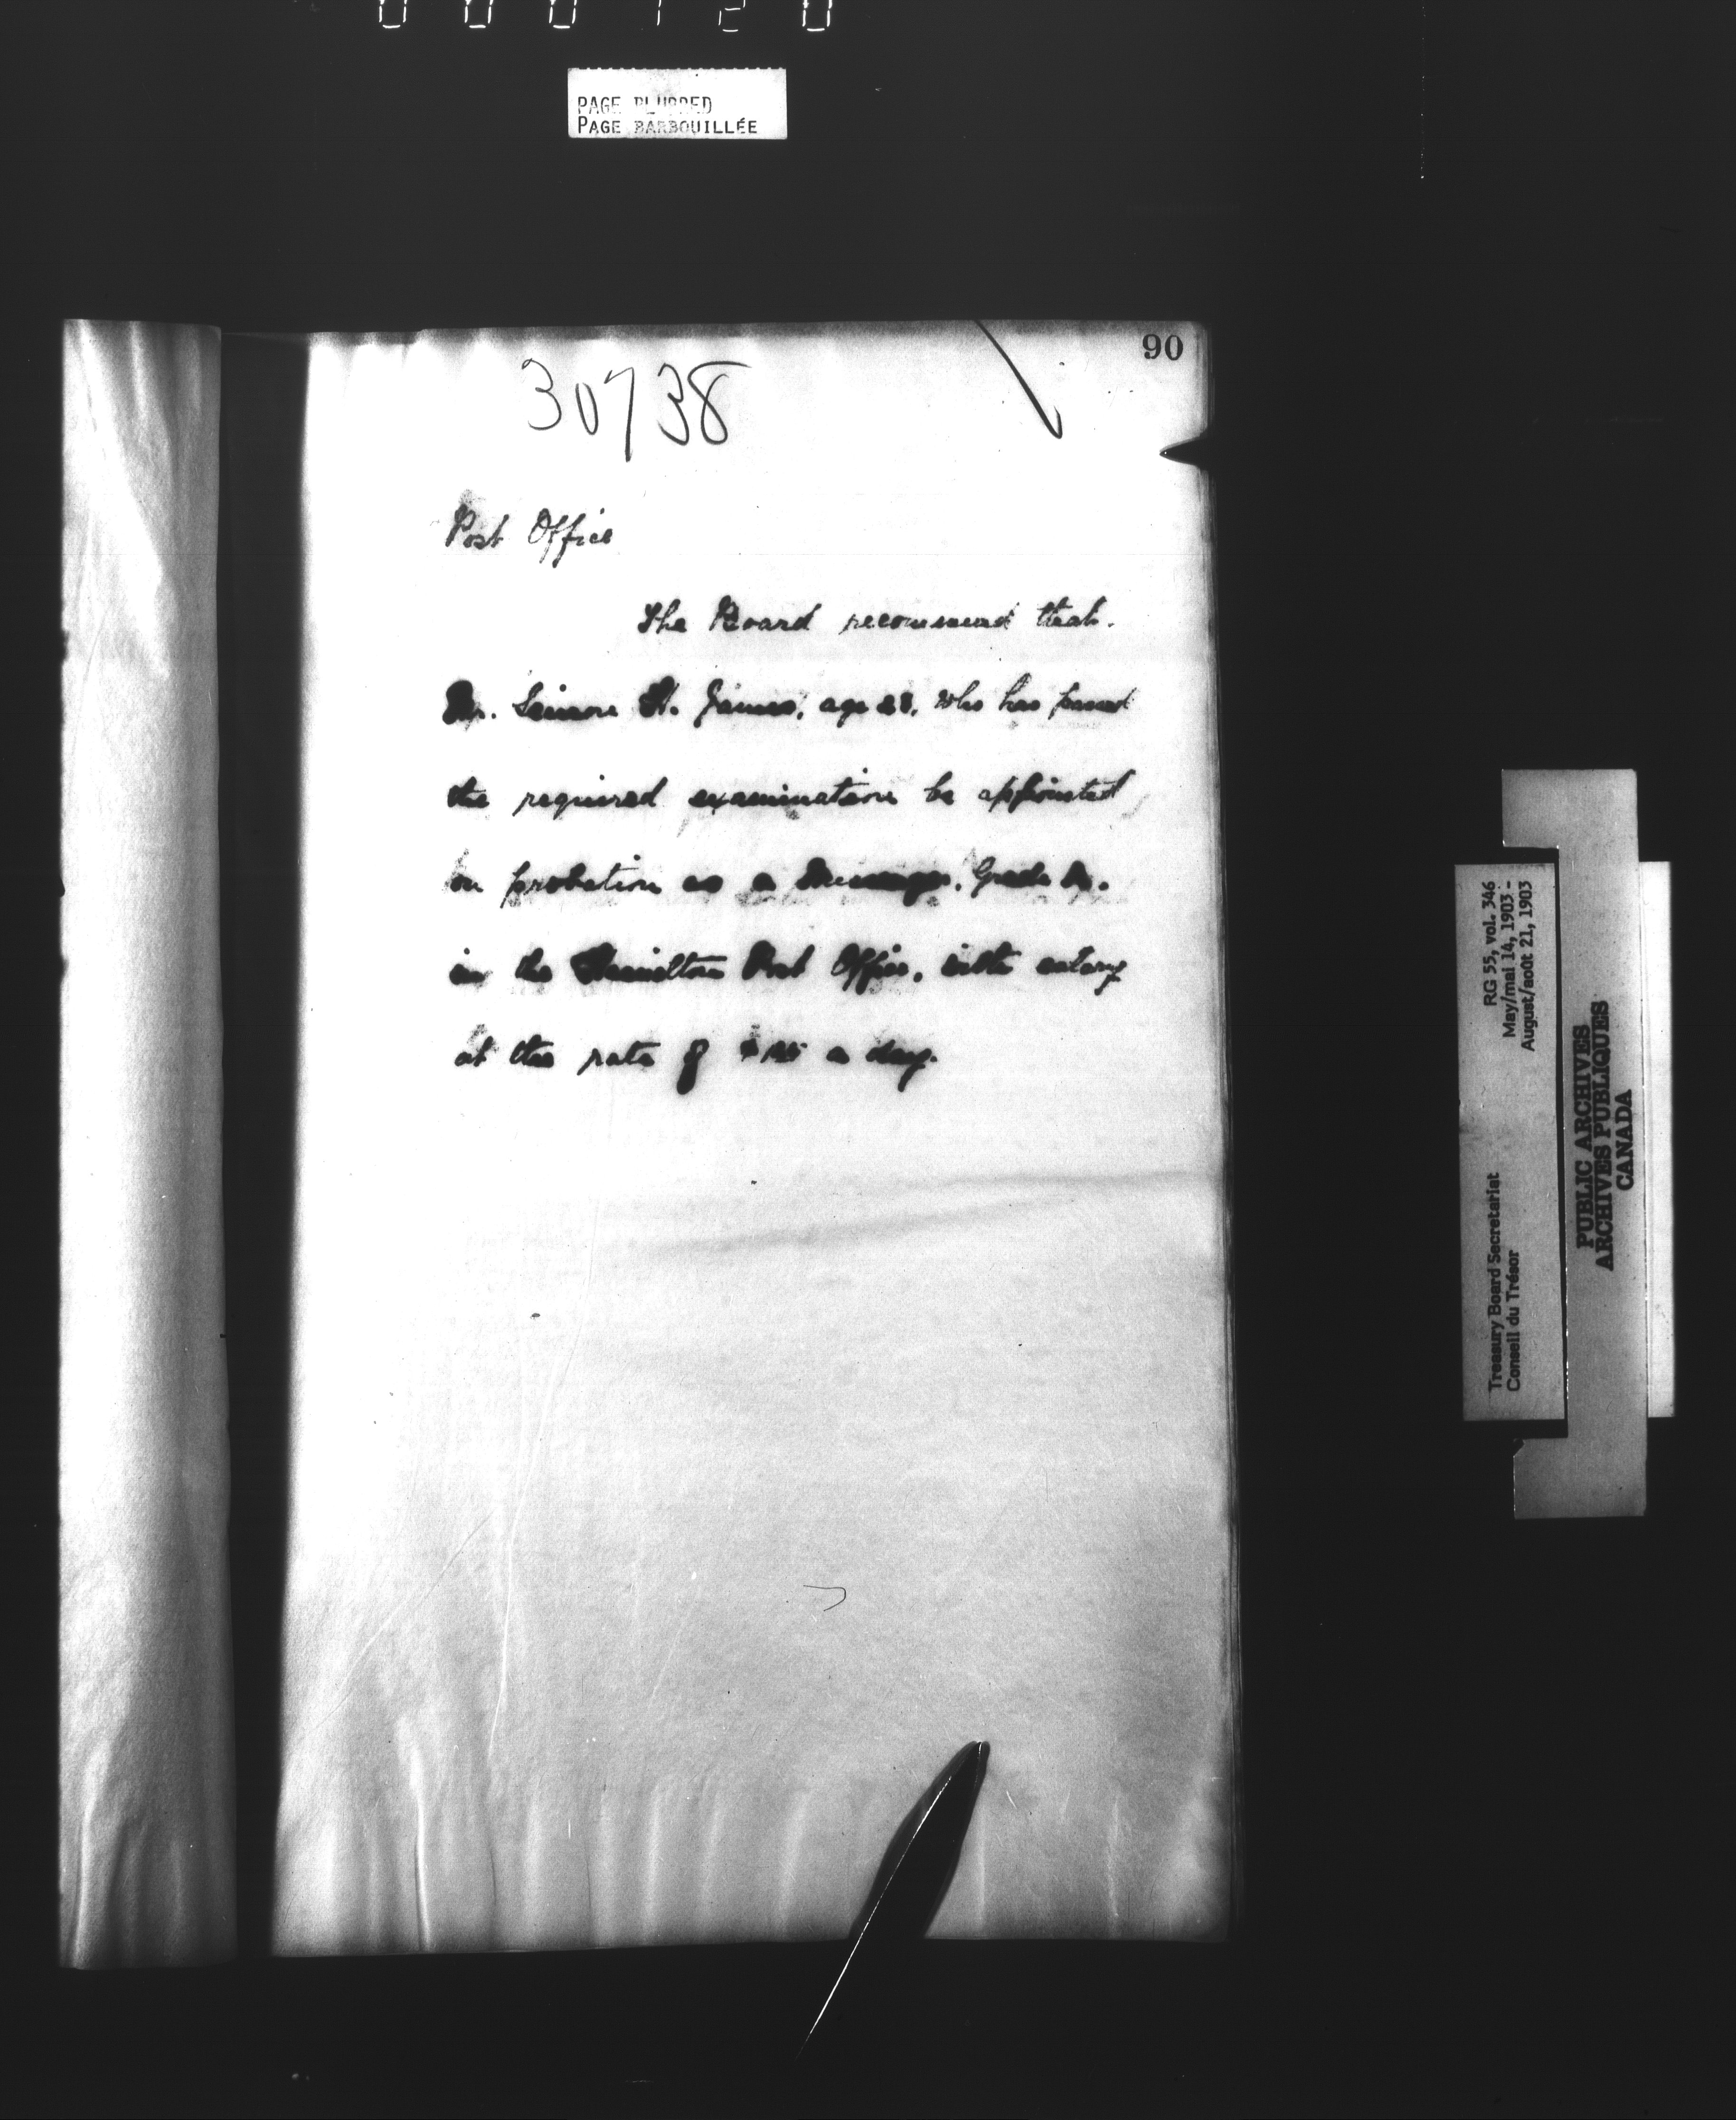 PAGE BLURRED
PAGE BARBOUILLÉE
90
30738
Post Office
The Board recommend that
Mr. St. James, age 28, who has passed
the required examination be appointed
on probation as a Messenger, Grade
in the Hamilton Post Office, with salary
at the rate of a day.
RG 55, vol. 346
May/mai 14, 1903 -
August/août 21, 1903
Treasury Board Secretariat
Conseil du Trésor
PUBLIC ARCHIVES
ARCHIVES PUBLIQUES
CANADA